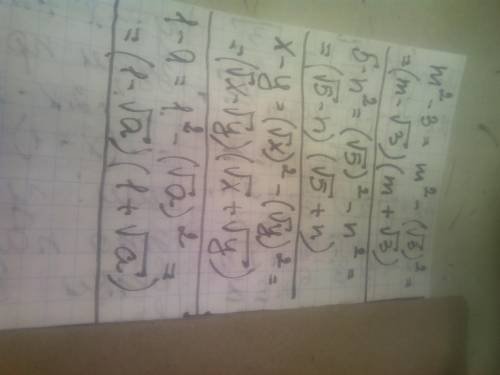 m² - 3 = m² - (√3)² =
= (m - √3)(m + √3)
5 - n² = (√5)² - n² =
= (√5 - n)(√5 + n)
x - y = (√x)² - (√y)² =
= (√x - √y)(√x + √y)
1 - a = 1² - (√a)² =
= (1 - √a)(1 + √a)